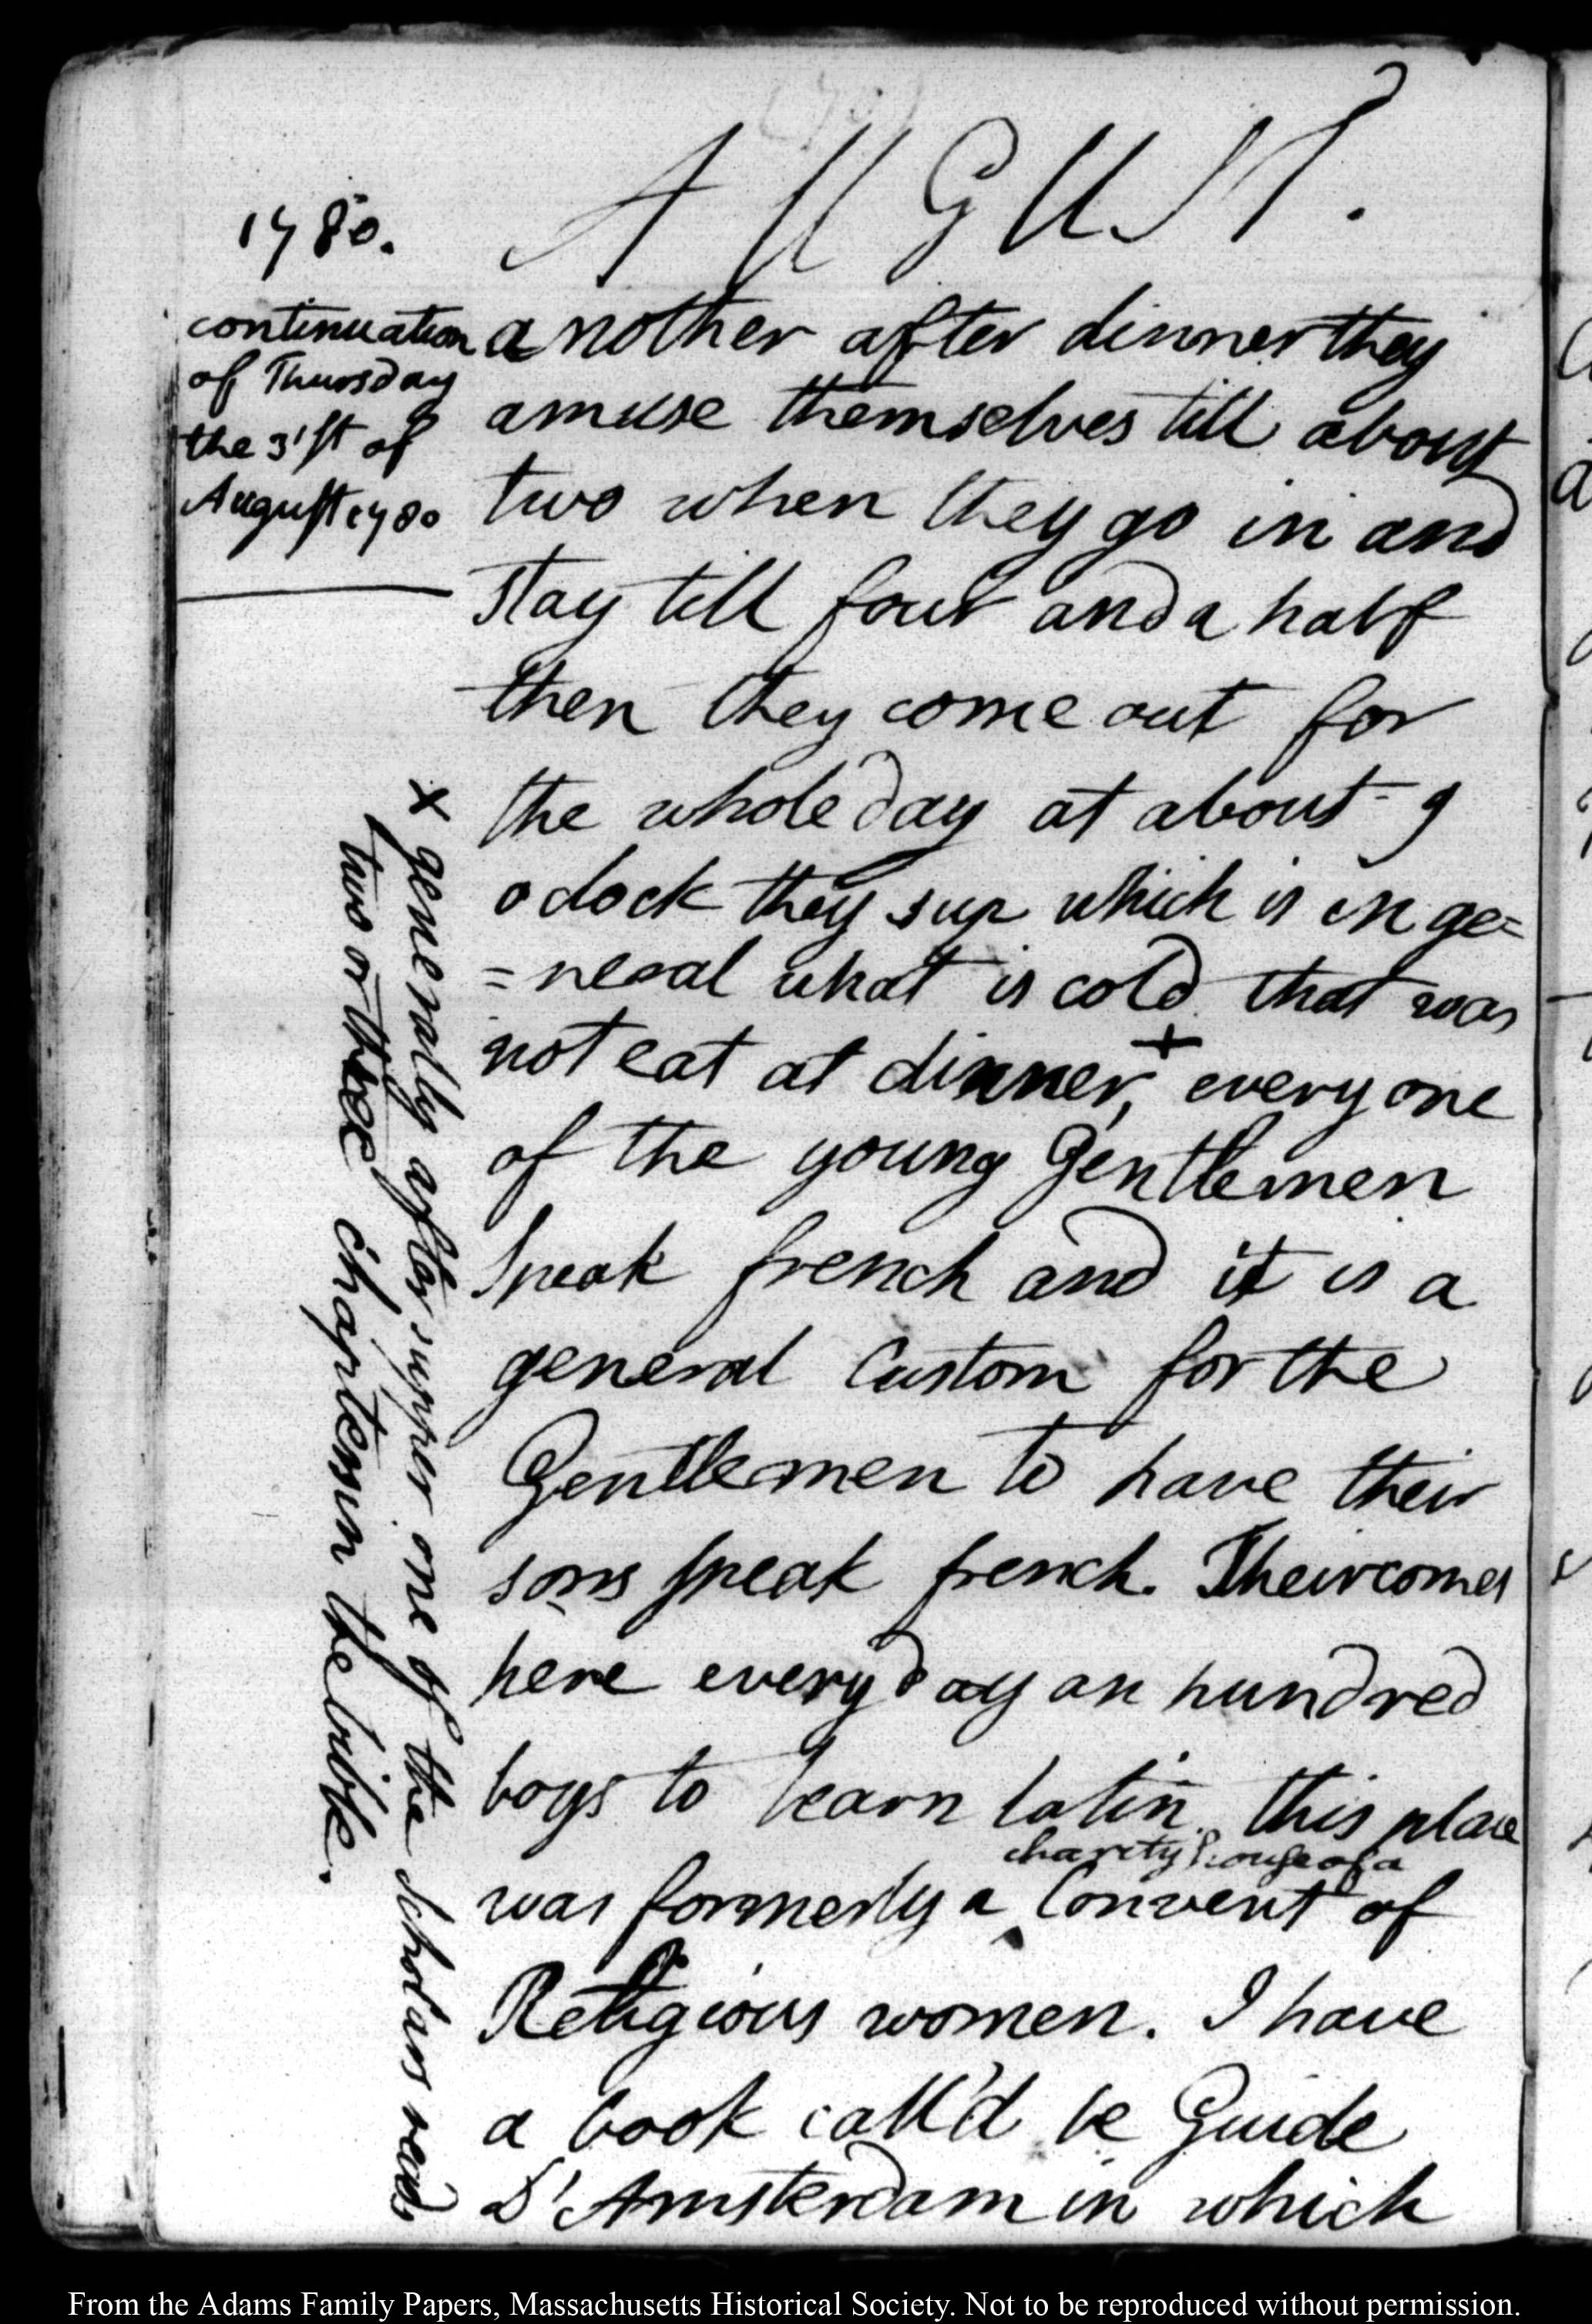 AUGUST.
1780.
continuation
of Thursday
the 31st of
August 1780
another after dinner they
amuse themselves till about
two when they go in and
stay till four and a half
then they come out for
the whole day at about 9
o clock they sup which is in ge=
=neral what is cold that was
not eat at dinner,+ every one
of the young Gentlemen
Speak french and it is a
general Custom for the
Gentlemen to have their
sons speak french. Their comes
here every day an hundred
boys to learn latin. this place
charity house of a
was formerly a ‸ Convent of
Religious women. I have
a book call'd le Guide
D'Amsterdam in which
+ generally after supper one of the scholars reads
two or three chapters in the bible.
From the Adams Family Papers, Massachusetts Historical Society. Not to be reproduced without permission.